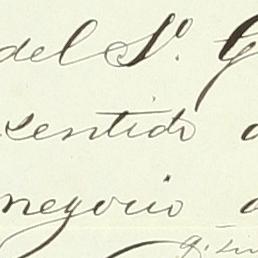 del Sº. G
sentido
negocio